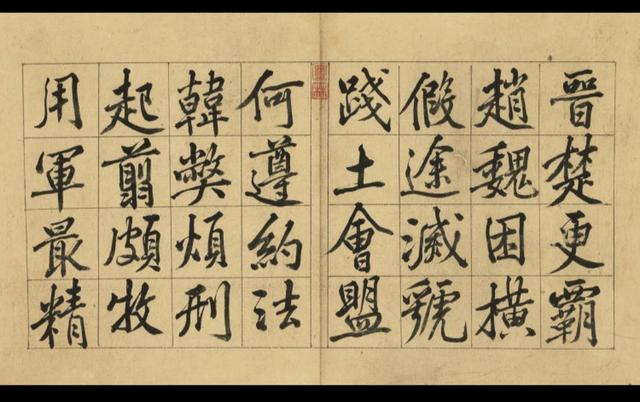 晉楚更霸
趙魏困橫
假途滅虢
踐土會盟
何遵約法
韓弊煩刑
起翦頗牧
用軍最精